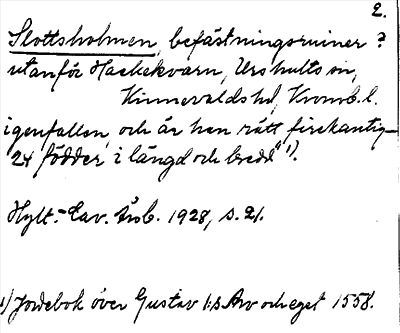 2.
Slottsholmen, befästningsruiner?
utanför Hackekvarn, Urshults sn,
Kinnevalds hd, Kronob. l.
igenfallen, och är han rätt firekantig
24 födder i längd och bredd" 1).
Hylt.-Cav. Årsb. 1928, s. 21.
1) Jordebok över Gustav I:s Arv och eget 1558.